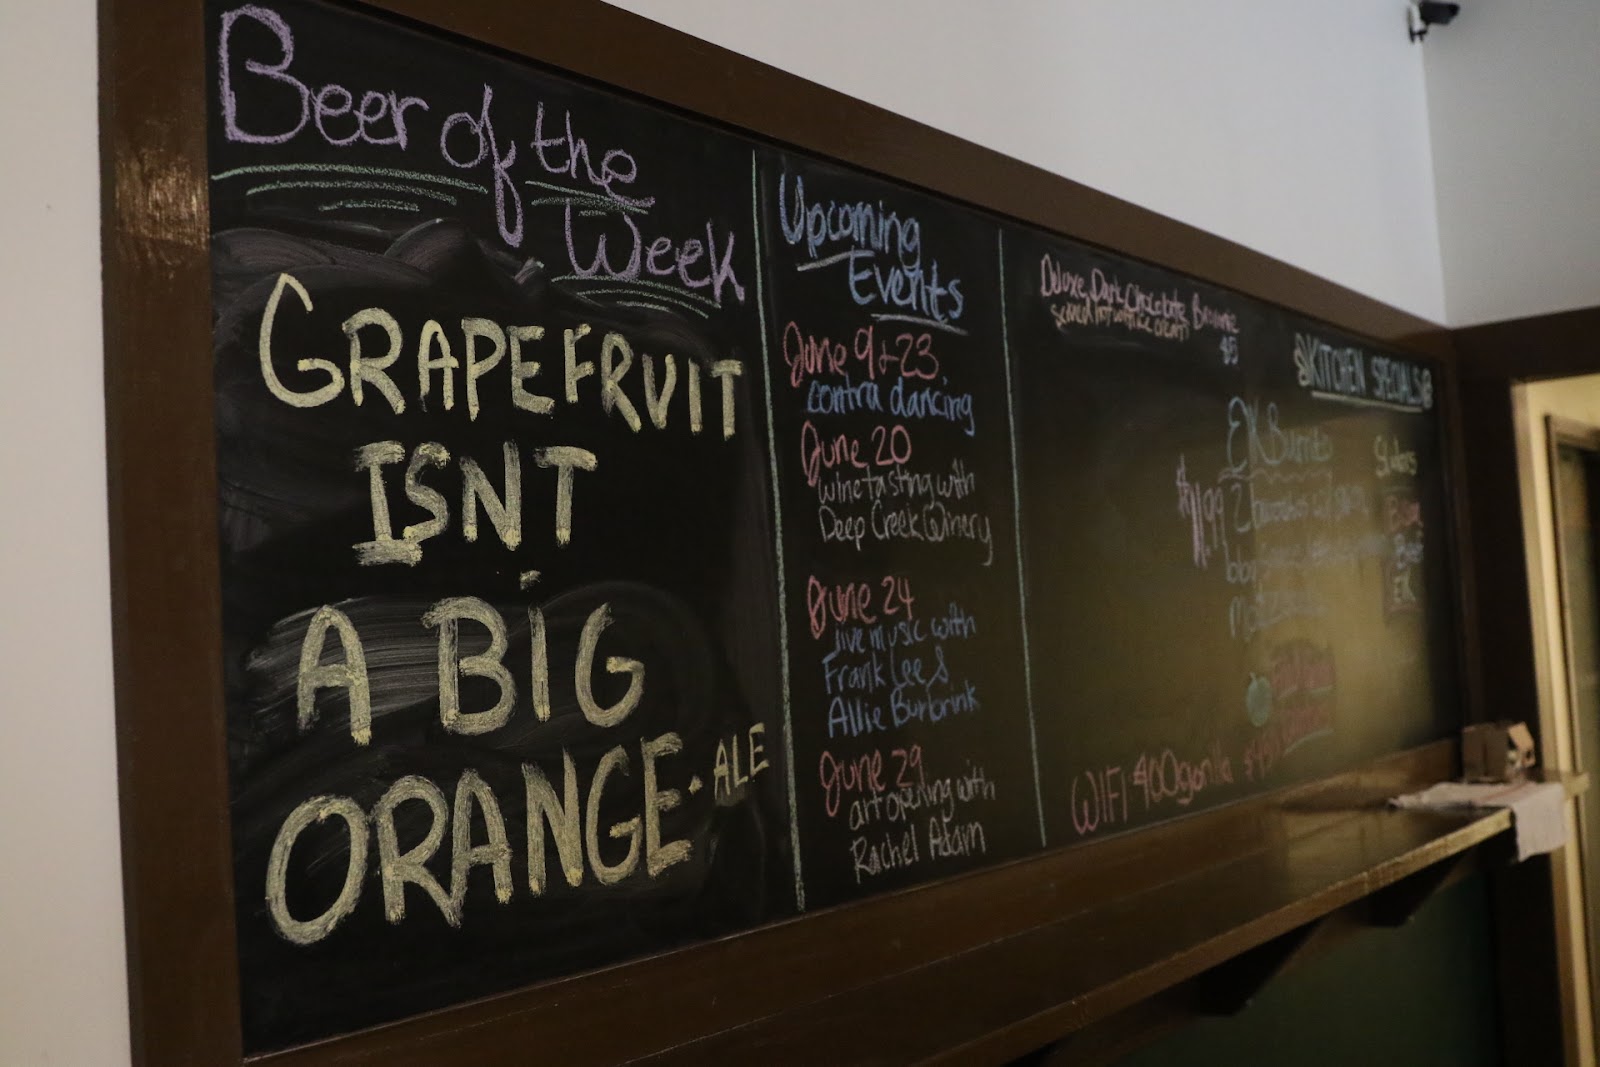 Beer of the
Week
GRAPEFRUIT
ISNT
A BIG
ORANGE · ALE
Upcoming
Events
June 9 & 23
contra dancing
June 20
wine tasting with
Deep Creek Winery
June 24
live music with
Frank Lee &
Allie Burbrink
June 29
art opening with
Rachel Adam
Deluxe Dark Chocolate Brownie
served with ice cream
$5
KITCHEN SPECIALS
EK Burrito
$11.99 2
Sliders
Bison
Beef
Elk
WIFI 400gorilla